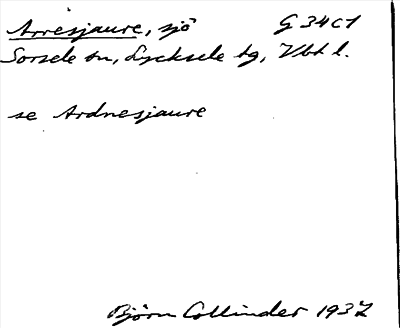 Arresjaure, sjö G 34 c 1
Sorsele sn, Lycksele tg, Vbt l.
se Ardnesjaure
Björn Collinder 1937